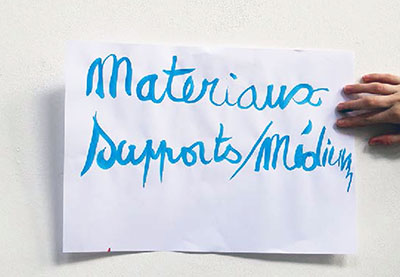 Materiaux
Supports/Médiums